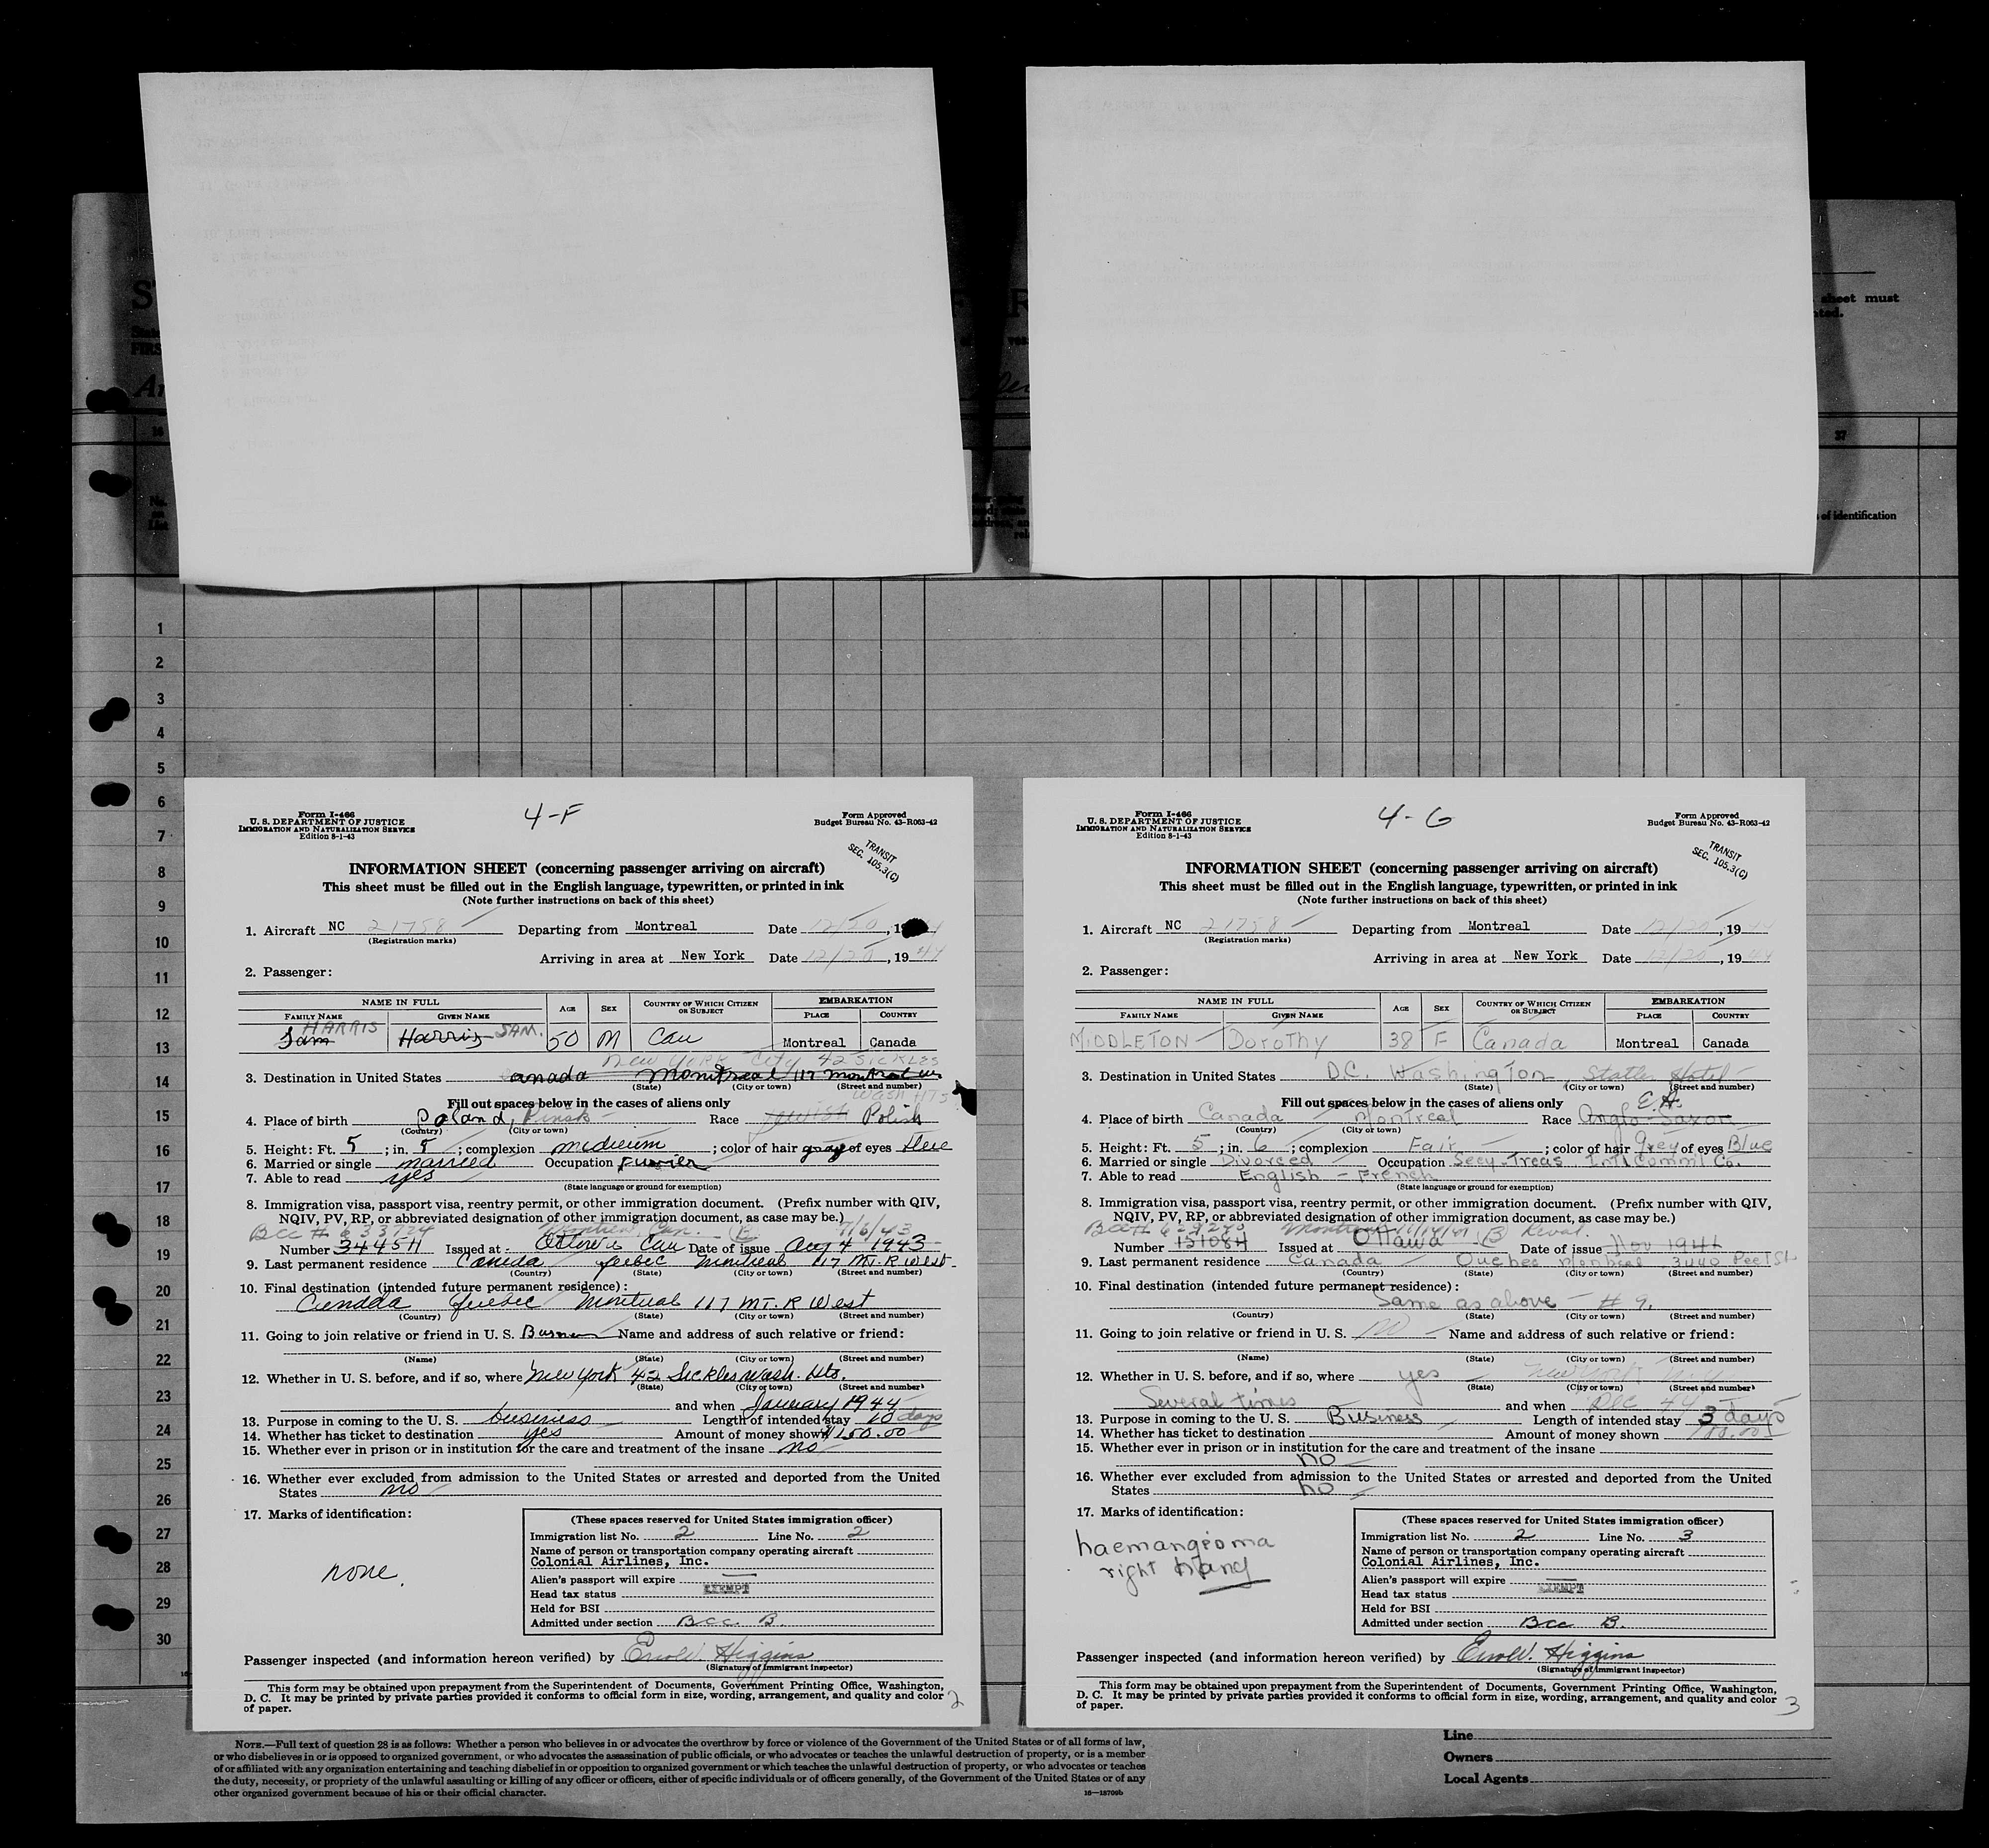 sheet must
of identification
37
1
2
3
4
5
6
7
8
9
10
11
12
13
14
15
16
17
18
19
20
21
22
23
24
25
26
27
28
29
30
Form I-466
U. S. DEPARTMENT OF JUSTICE
IMMIGRATION AND NATURALIZATION SERVICE
Edition 8-1-43
4-F
Form Approved
Budget Bureau No. 43-R063-42
TRANSIT
SEC. 105.3(C)
INFORMATION SHEET (concerning passenger arriving on aircraft)
This sheet must be filled out in the English language, typewritten, or printed in ink
(Note further instructions on back of this sheet)
1. Aircraft NC 21758 Departing from Montreal Date 12/20, 19
(Registration marks)
Arriving in area at New York Date 12/20, 1944
2. Passenger:
NAME IN FULL AGE SEX COUNTRY OF WHICH CITIZEN OR SUBJECT EMBARKATION
FAMILY NAME GIVEN NAME PLACE COUNTRY
HARRIS SAM.
Sam Harris 50 M Can Montreal Canada
NEW YORK CITY 42 SICKLES
3. Destination in United States Canada Montreal 117 Montreal
(State) (City or town) (Street and number)
WASH HTS
Fill out spaces below in the cases of aliens only
4. Place of birth Poland, Pinsk Race Jewish Polish
(Country) (City or town)
5. Height: Ft. 5; in. 5; complexion medieum; color of hair gray of eyes
6. Married or single married Occupation Furrier
7. Able to read yes
(State language or ground for exemption)
8. Immigration visa, passport visa, reentry permit, or other immigration document. (Prefix number with QIV,
NQIV, PV, RP, or abbreviated designation of other immigration document, as case may be.)
BCC # 7/6/43
Number 34454 Issued at Ottawa Can Date of issue Aug 4 1943
9. Last permanent residence Canada Quebec Montreal 117 MT. R West
(Country) (State) (City or town) (Street and number)
10. Final destination (intended future permanent residence):
Canada Quebec Montreal 117 MT. R West
(Country) (State) (City or town) (Street and number)
11. Going to join relative or friend in U. S. Name and address of such relative or friend:
(Name) (State) (City or town) (Street and number)
12. Whether in U. S. before, and if so, where New York 42 Sickles Wash. Hts.
(State) (City or town) (Street and number)
and when January 1944
13. Purpose in coming to the U. S. business Length of intended stay 10 days
14. Whether has ticket to destination yes Amount of money shown
15. Whether ever in prison or in institution for the care and treatment of the insane no
16. Whether ever excluded from admission to the United States or arrested and deported from the United
States no
17. Marks of identification:
none.
(These spaces reserved for United States immigration officer)
Immigration list No. 2 Line No. 2
Name of person or transportation company operating aircraft
Colonial Airlines, Inc.
Alien's passport will expire
EXEMPT
Head tax status
Held for BSI
Admitted under section Bcc. B.
Passenger inspected (and information hereon verified) by Errol W. Higgins
(Signature of immigrant inspector)
This form may be obtained upon prepayment from the Superintendent of Documents, Government Printing Office, Washington,
D. C. It may be printed by private parties provided it conforms to official form in size, wording, arrangement, and quality and color
of paper.
2
Form I-466
U. S. DEPARTMENT OF JUSTICE
IMMIGRATION AND NATURALIZATION SERVICE
Edition 8-1-43
4-G
Form Approved
Budget Bureau No. 43-R063-42
TRANSIT
SEC. 105.3(C)
INFORMATION SHEET (concerning passenger arriving on aircraft)
This sheet must be filled out in the English language, typewritten, or printed in ink
(Note further instructions on back of this sheet)
1. Aircraft NC 21758 Departing from Montreal Date 12/20, 19
(Registration marks)
Arriving in area at New York Date 12/20, 1944
2. Passenger:
NAME IN FULL AGE SEX COUNTRY OF WHICH CITIZEN OR SUBJECT EMBARKATION
FAMILY NAME GIVEN NAME PLACE COUNTRY
MIDDLETON Dorothy 38 F Canada Montreal Canada
3. Destination in United States D.C. Washington Statler Hotel
(State) (City or town) (Street and number)
Fill out spaces below in the cases of aliens only
E.A.
4. Place of birth Canada Montreal Race Anglo-Saxon
(Country) (City or town)
5. Height: Ft. 5; in. 6; complexion Fair; color of hair Grey of eyes Blue
6. Married or single Divorced Occupation Secy-Treas Int'l Comm'l Co.
7. Able to read English - French
(State language or ground for exemption)
8. Immigration visa, passport visa, reentry permit, or other immigration document. (Prefix number with QIV,
NQIV, PV, RP, or abbreviated designation of other immigration document, as case may be.)
BCC# Montreal Reval.
Number 151084 Issued at Ottawa Date of issue Nov 1941
9. Last permanent residence Canada Quebec Montreal 3440 Peel St
(Country) (State) (City or town) (Street and number)
10. Final destination (intended future permanent residence):
Same as above - # 9.
(Country) (State) (City or town) (Street and number)
11. Going to join relative or friend in U. S. no Name and address of such relative or friend:
(Name) (State) (City or town) (Street and number)
12. Whether in U. S. before, and if so, where yes New York N.Y.
(State) (City or town) (Street and number)
Several times and when Dec 44
13. Purpose in coming to the U. S. Business Length of intended stay 3 days
14. Whether has ticket to destination Amount of money shown 100.00
15. Whether ever in prison or in institution for the care and treatment of the insane
no
16. Whether ever excluded from admission to the United States or arrested and deported from the United
States no
17. Marks of identification:
haemangioma
right hand
(These spaces reserved for United States immigration officer)
Immigration list No. 2 Line No. 3
Name of person or transportation company operating aircraft
Colonial Airlines, Inc.
Alien's passport will expire
EXEMPT
Head tax status
Held for BSI
Admitted under section Bcc B.
Passenger inspected (and information hereon verified) by Errol W. Higgins
(Signature of immigrant inspector)
This form may be obtained upon prepayment from the Superintendent of Documents, Government Printing Office, Washington,
D. C. It may be printed by private parties provided it conforms to official form in size, wording, arrangement, and quality and color
of paper.
3
NOTE.—Full text of question 28 is as follows: Whether a person who believes in or advocates the overthrow by force or violence of the Government of the United States or of all forms of law,
or who disbelieves in or is opposed to organized government, or who advocates the assassination of public officials, or who advocates or teaches the unlawful destruction of property, or is a member
of or affiliated with any organization entertaining and teaching disbelief in or opposition to organized government or which teaches the unlawful destruction of property, or who advocates or teaches
the duty, necessity, or propriety of the unlawful assaulting or killing of any officer or officers, either of specific individuals or of officers generally, of the Government of the United States or of any
other organized government because of his or their official character.
16—18709b
Line
Owners
Local Agents